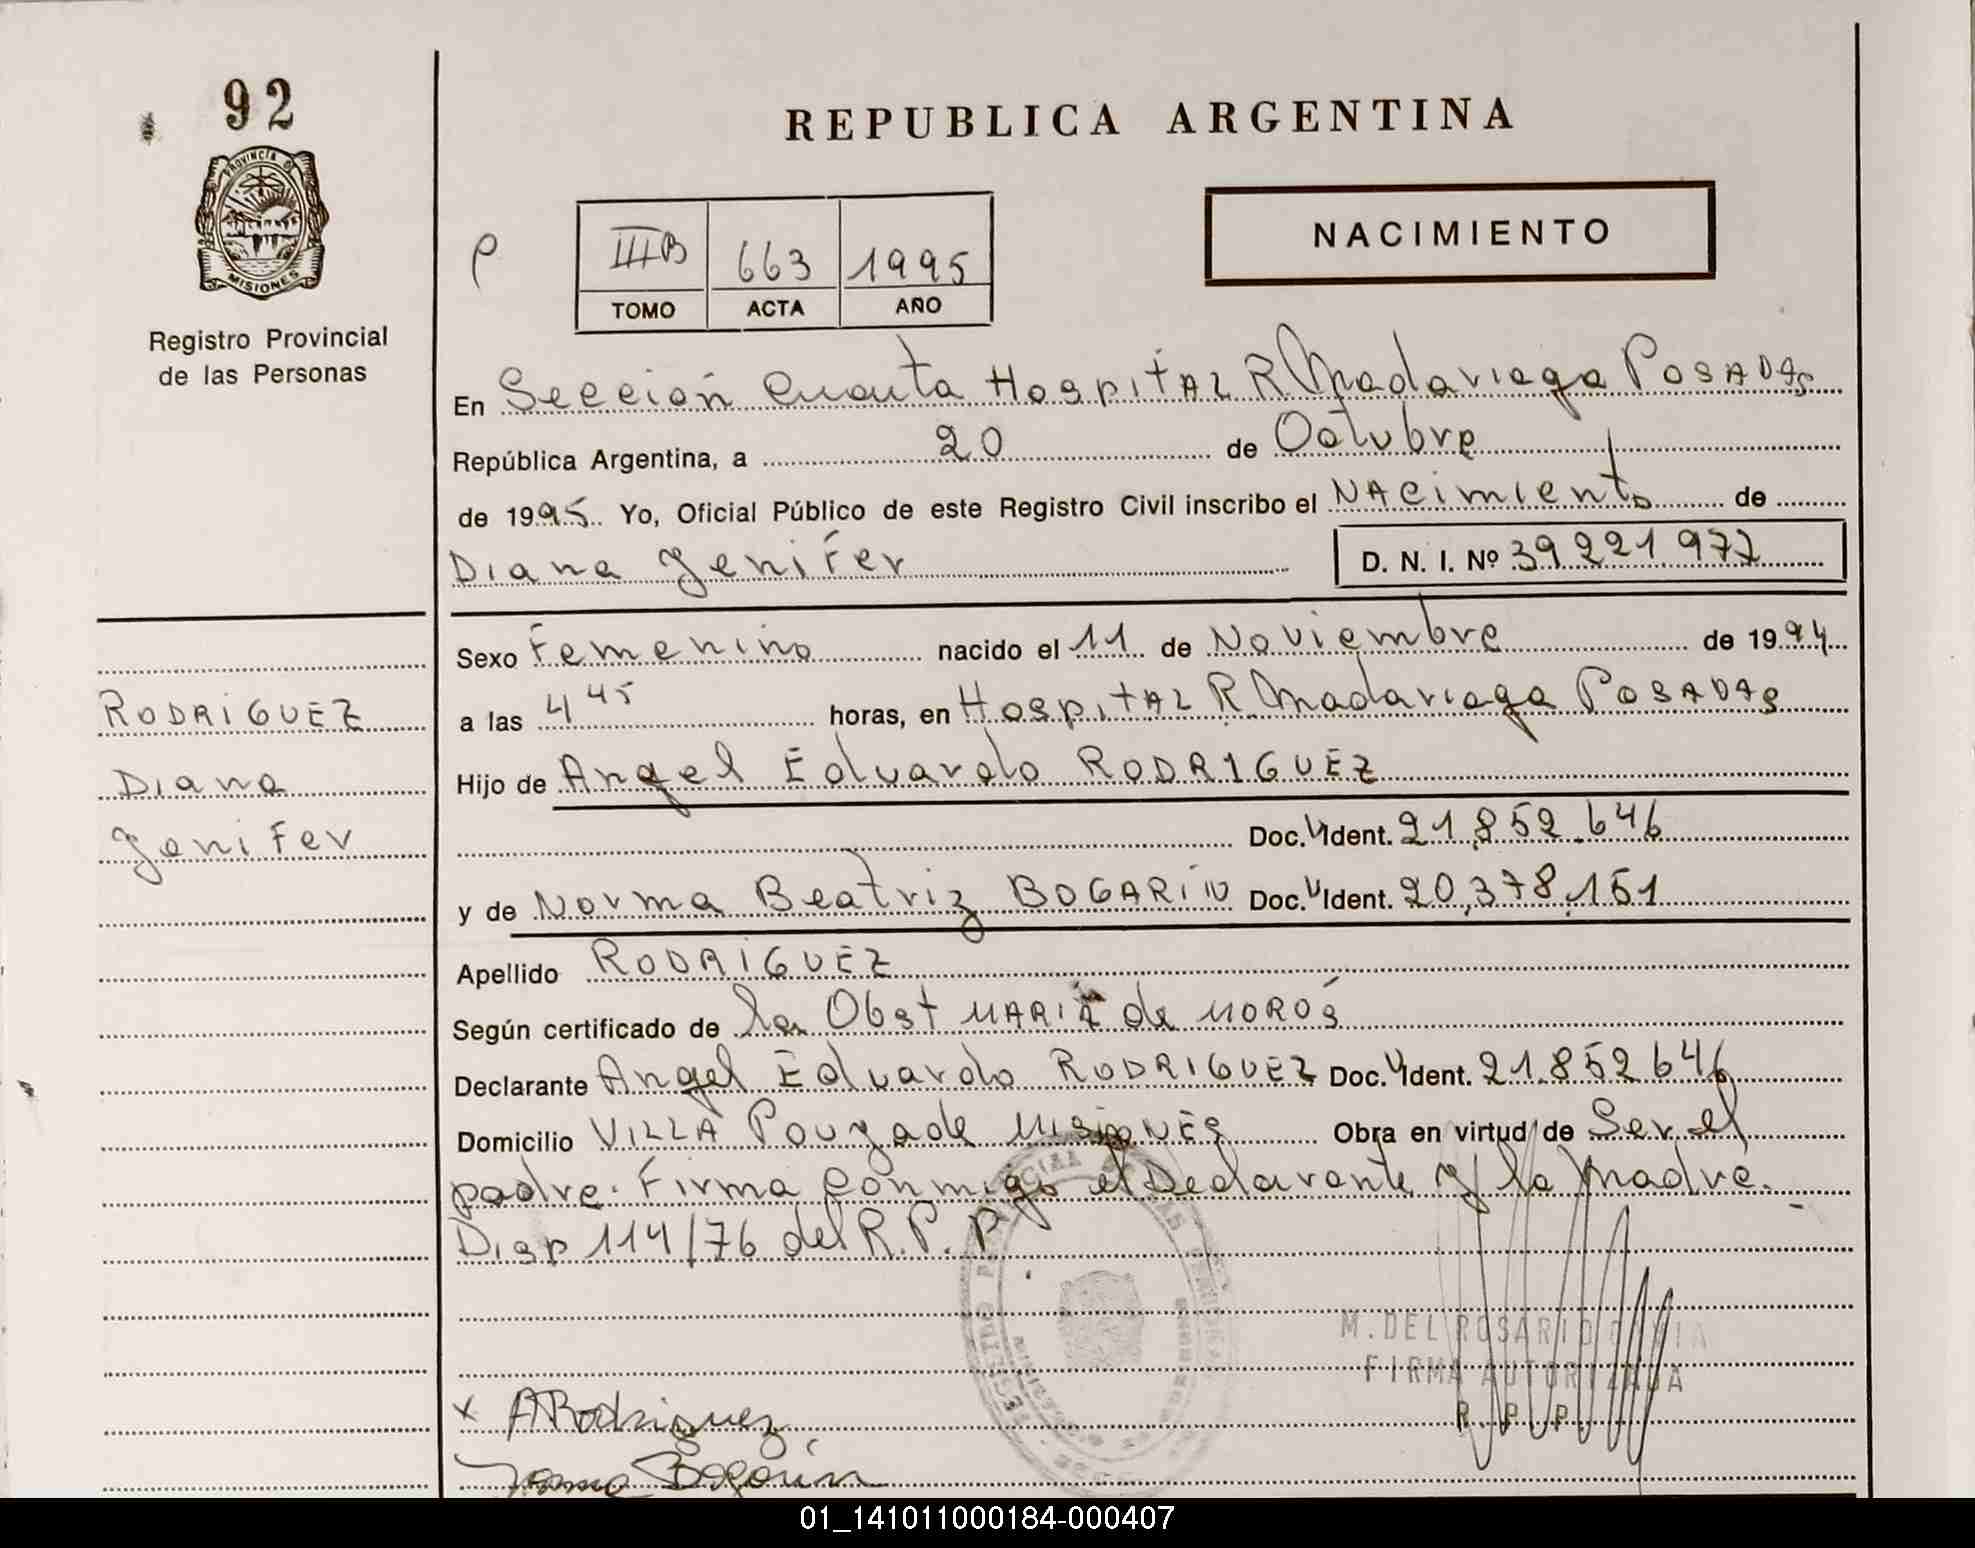 92
PROVINCIA DE
MISIONES
Registro Provincial
de las Personas
RODRIGUEZ
Diana
Jenifer
REPUBLICA ARGENTINA
NACIMIENTO
IIIB 663 1995
TOMO ACTA AÑO
En Sección Cuarta Hospital R Madariaga Posadas
República Argentina, a 20 de Octubre
de 1995. Yo, Oficial Público de este Registro Civil inscribo el Nacimiento de
Diana Jenifer D. N. I. Nº 39 221 977
Sexo Femenino nacido el 11 de Noviembre de 1994
a las 4 45 horas, en Hospital R Madariaga Posadas
Hijo de Angel Eduardo RODRIGUEZ
Doc. Ident. 21.852.646
y de Norma Beatriz BOGARÍN Doc. Ident. 20.378.151
Apellido RODRIGUEZ
Según certificado de la Obst MARIA de MOROS
Declarante Angel Eduardo RODRIGUEZ Doc. Ident. 21.852 646
Domicilio VILLA Misiones Obra en virtud de Ser el
padre. Firma conmigo el Declarante y la Madre.
Disp 114/76 del R.P.P
M. DEL ROSARIO
FIRMA AUTORIZADA
R. P. P.
x ARodriguez
Norma Bogarin
01_141011000184-000407